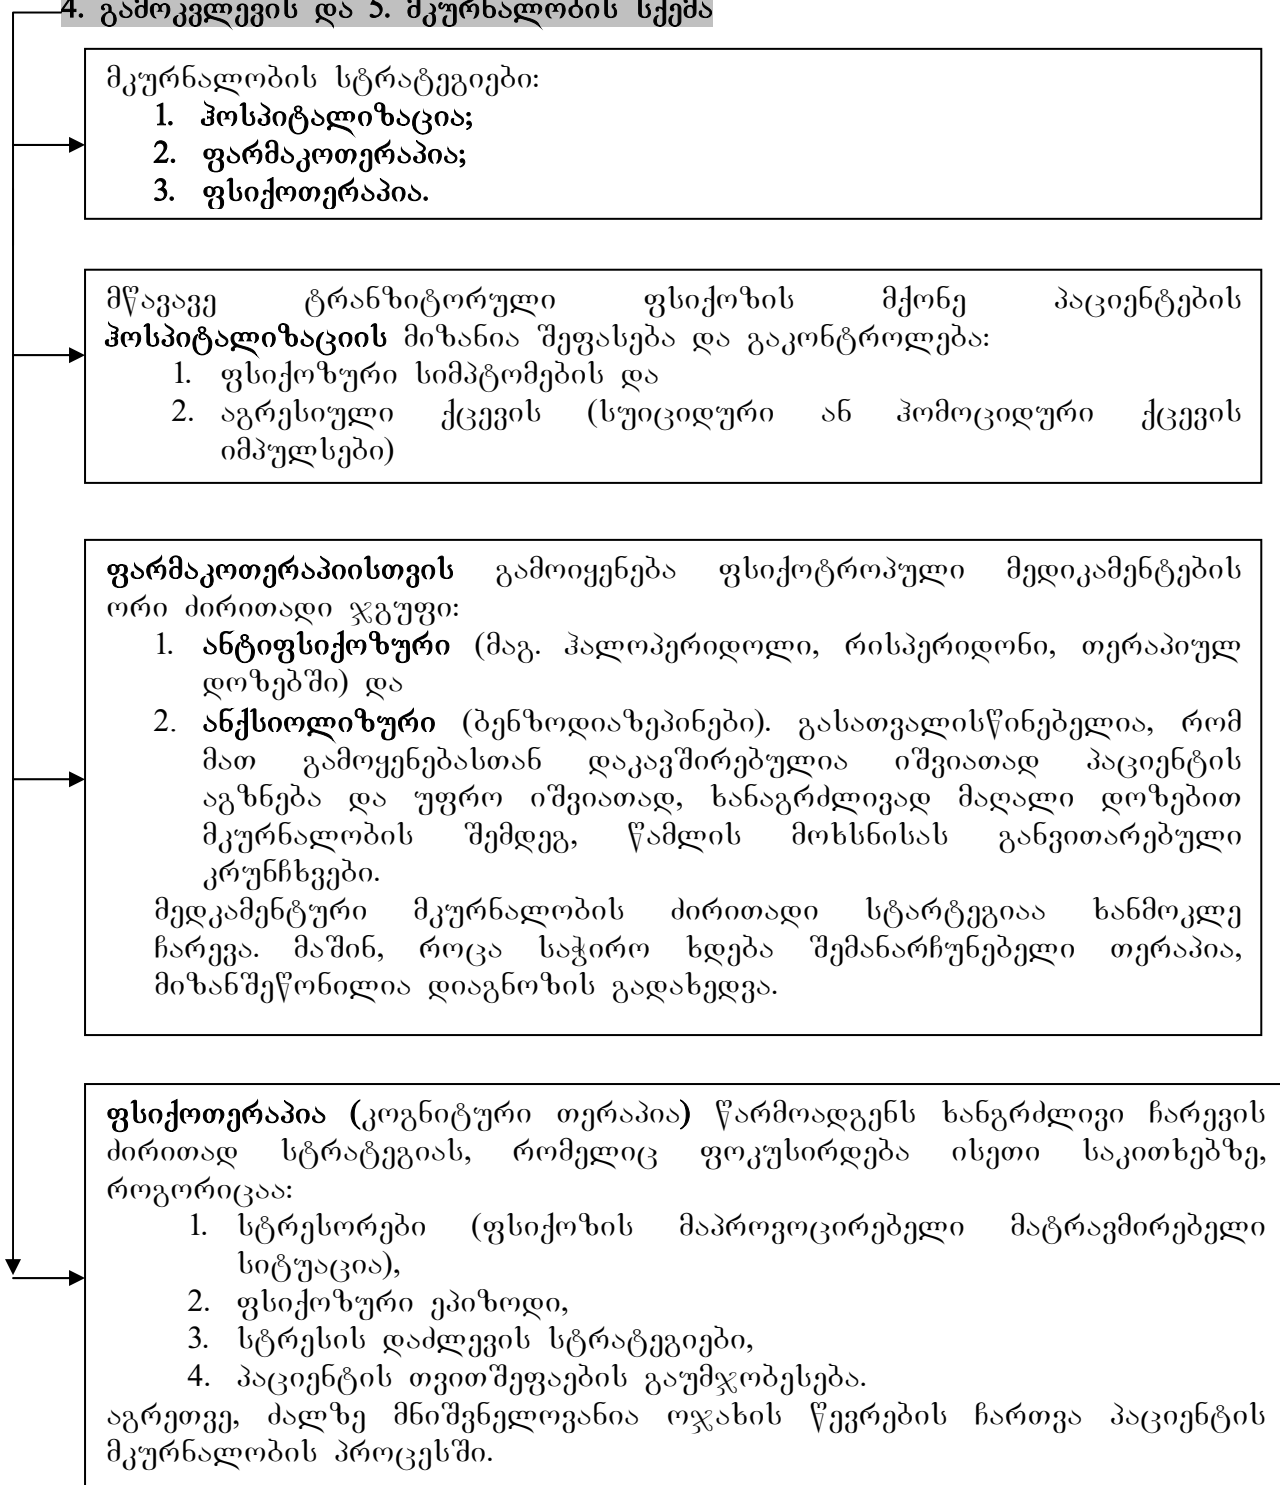 4. გამოკვლევის და 5. მკურნალობის სქემა
მკურნალობის სტრატეგიები:
1. ჰოსპიტალიზაცია;
2. ფარმაკოთერაპია;
3. ფსიქოთერაპია.
მწავავე ტრანზიტორული ფსიქოზის მქონე პაციენტების
ჰოსპიტალიზაციის მიზანია შეფასება და გაკონტროლება:
1. ფსიქოზური სიმპტომების და
2. აგრესიული ქცევის (სუიციდური ან ჰომოციდური ქცევის
იმპულსები)
ფარმაკოთერაპიისთვის გამოიყენება ფსიქოტროპული მედიკამენტების
ორი ძირითადი ჯგუფი:
1. ანტიფსიქოზური (მაგ. ჰალოპერიდოლი, რისპერიდონი, თერაპიულ
დოზებში) და
2. ანქსიოლიზური (ბენზოდიაზეპინები). გასათვალისწინებელია, რომ
მათ გამოყენებასთან დაკავშირებულია იშვიათად პაციენტის
აგზნება და უფრო იშვიათად, ხანაგრძლივად მაღალი დოზებით
მკურნალობის შემდეგ, წამლის მოხსნისას განვითარებული
კრუნჩხვები.
მედკამენტური მკურნალობის ძირითადი სტარტეგიაა ხანმოკლე
ჩარევა. მაშინ, როცა საჭირო ხდება შემანარჩუნებელი თერაპია,
მიზანშეწონილია დიაგნოზის გადახედვა.
ფსიქოთერაპია (კოგნიტური თერაპია) წარმოადგენს ხანგრძლივი ჩარევის
ძირითად სტრატეგიას, რომელიც ფოკუსირდება ისეთი საკითხებზე,
როგორიცაა:
1. სტრესორები (ფსიქოზის მაპროვოცირებელი მატრავმირებელი
სიტუაცია),
2. ფსიქოზური ეპიზოდი,
3. სტრესის დაძლევის სტრატეგიები,
4. პაციენტის თვითშეფაების გაუმჯობესება.
აგრეთვე, ძალზე მნიშვნელოვანია ოჯახის წევრების ჩართვა პაციენტის
მკურნალობის პროცესში.